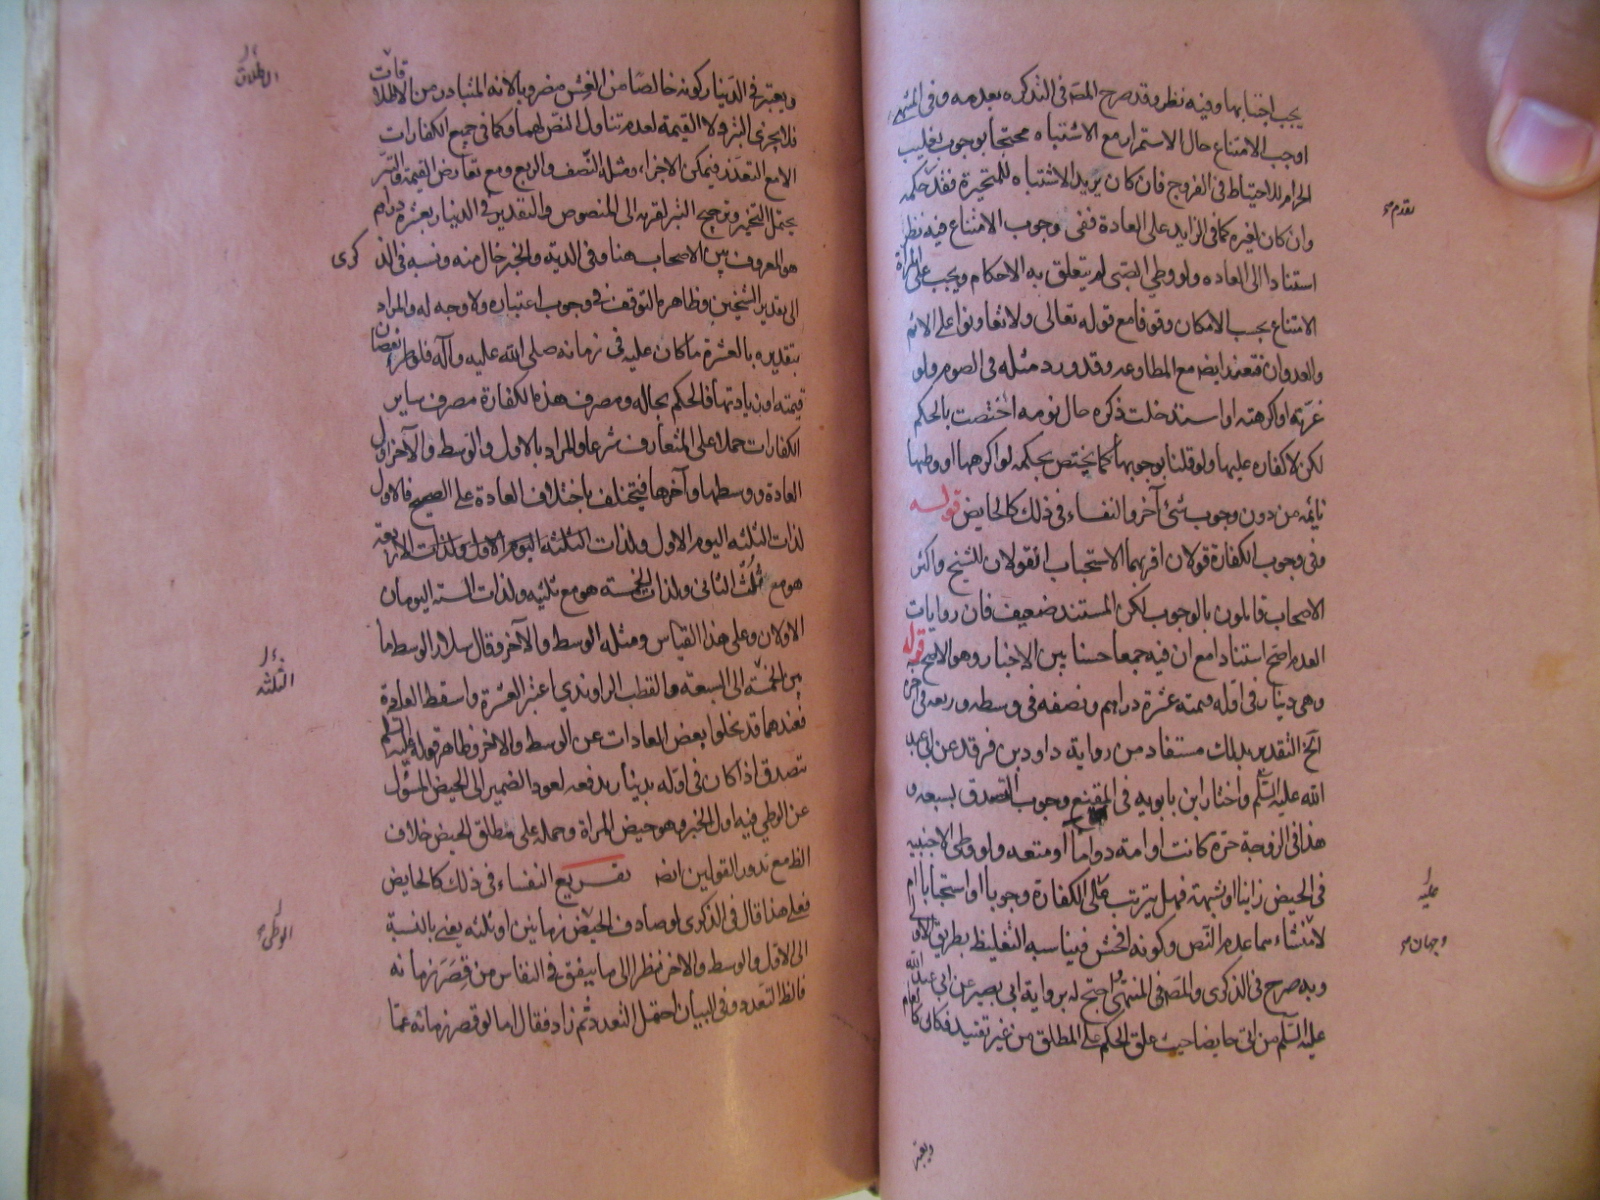 يجب اجتنابها وفيه نظر وقد صرح المصـ فى التذكره بعدمه وفى المنتهى
اوجب الامتناع حال الاستمرار مع الاشتباه محتجا بوجوب تغليب
الحرام للاحتياط فى الفروج فان كان يريد الاشتباه للمتحيرة فقد حكمه
تقدم
وان كان لغيره كما فى الزايد على العادة ففى وجوب الامتناع فيه نظر
استنادا الى العاده ولو وطى الصبى لم يتعلق به الاحكام ويجب على المراة
الامتناع بحسب الامكان وقوفا مع قوله تعالى ولا تعاونوا على الاثم
والعدوان فتعزر ايضا مع المطاوعه وقد ورد مثله فى الصوم ولو
غرته او اكرهته او استدخلت ذكره حال نومه اختصت بالحكم
لكن لا كفاره عليها ولو قلنا بوجوبها كما يختص بحكمه لو اكرهها او وطيها
نايمه من دون وجوب شئ آخر والنفساء فى ذلك كالحايض قوله
وفى وجوب الكفارة قولان اقربهما الاستحباب القولان للشيخ واكثر
الاصحاب قايلون بالوجوب لكن المستند ضعيف فان روايات
العدم اصح اسنادا مع ان فيه جمعا حسنا بين الاخبار وهو الاصح قوله
وهى دينار فى اوله قيمته عشرة دراهم ونصفه فى وسطه وربعه فى آخره
آخ التقدير بذلك مستفاد من رواية داود بن فرقد عن ابى عبد
الله عليه السلم واختار ابن بابويه فى المقنع وجوب التصدق بسبعه و
هذا فى الزوجة حرة كانت او امة دواما او متعه ولو وطى الاجنبيه
فى الحيض زانيا او لشبهة فهل يترتب عليه الكفارة وجوبا او استحبابا ام
عليه
لا منشاء‌هما عدم النص وكونه افحش فيناسبه التغليظ بطريق الاولى
وجهان
وبه صرح فى الذكرى والمصـ فى المنتهى واحتج له برواية ابى بصير عن ابى عبد الله
عليه السلم من اتى حايضا حيث علق الحكم على المطلق من غير تقييد فكان كالعام
ويعتبر
ويعتبر فى الدينار كونه خالصا من الغش مضروبا لانه المتبادر من الاطلاقات
الاطلاق
فلا يجزى التبر ولا القيمة لعدم تناول النص لهما وكما فى جميع الكفارات
الا مع التعذر فيمكن الاجزاء ومثله النصف والربع ومع تعارض القيمة والتبر
يحتمل التخيير وترجيح التبر لقربه الى المنصوص والتقدير فى الدينار بعشرة دراهم
هو المعروف بين الاصحاب هنا وفى الدية والخبر خال منه ونسبه فى الذكرى
الى تقدير الشيخين وظاهره التوقف فى وجوب اعتباره ولا وجه له والمراد
بتقديره بالعشرة ما كان عليه فى زمانه صلى الله عليه وآله فلو نقصان
قيمته او زيادتها فالحكم بحاله ومصرف هذه الكفارة مصرف ساير
الكفارات حملا على المتعارف شرعا والمراد بالاول والوسط والآخر اول
العادة ووسطها وآخرها فيختلف باختلاف العادة على الصحيح فالاول
لذات الثلثه اليوم الاول ولذات الاربعه
هو مع ثلث الثانى ولذات الخمسة هو مع ثلثيه ولذات السته اليومان
الاولان وعلى هذا القياس ومثله الوسط والآخر وقال سلار الوسط ما
الثلثه
بين الخمسة الى السبعة والقطب الراوندى اعتبر العشرة واسقط العادة
فعندهما قد يخلوا بعض العادات عن الوسط والاخر وظاهر قوله عليه السلم
يتصدق اذا كان فى اوله بدينار يدفعه لعود الضمير الى الحيض المسؤل
عن الوطى فيه اول الخبر وهو حيض المراة وحمله على مطلق الحيض خلاف
الظ مع ندور القولين ايضا تفريع النفساء فى ذلك كالحايض
فعلى هذا قال فى الذكرى لو صادف الحيض زمانين او ثلثه يعنى بالنسبة
الوطى
الى الاول والوسط والاخر نظرا الى ما يتفق فى النفاس من قصر زمانه
فالظ التعدد وفى البيان احتمل التعدد ثم زاد فقال اما لو قصر زمانه عما